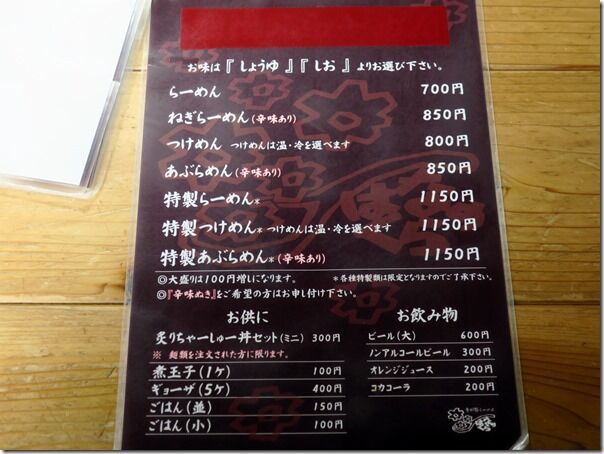 お味は『しょうゆ』『しお』よりお選び下さい。
らーめん 700円
ねぎらーめん(辛味あり) 850円
つけめん つけめんは温・冷を選べます 800円
あぶらめん(辛味あり) 850円
特製らーめん* 1150円
特製つけめん* つけめんは温・冷を選べます 1150円
特製あぶらめん*(辛味あり) 1150円
◎大盛りは100円増しになります。 *各種特製類は限定となりますのでご了承下さい。
◎『辛味ぬき』をご希望の方はお申し付け下さい。
お供に
炙りちゃーしゅー丼セット(ミニ) 300円
※ 麺類を注文された方に限ります。
煮玉子(1ケ) 100円
ギョーザ(5ケ) 400円
ごはん(並) 150円
ごはん(小) 100円
お飲み物
ビール(大) 600円
ノンアルコールビール 300円
オレンジジュース 200円
コカコーラ 200円